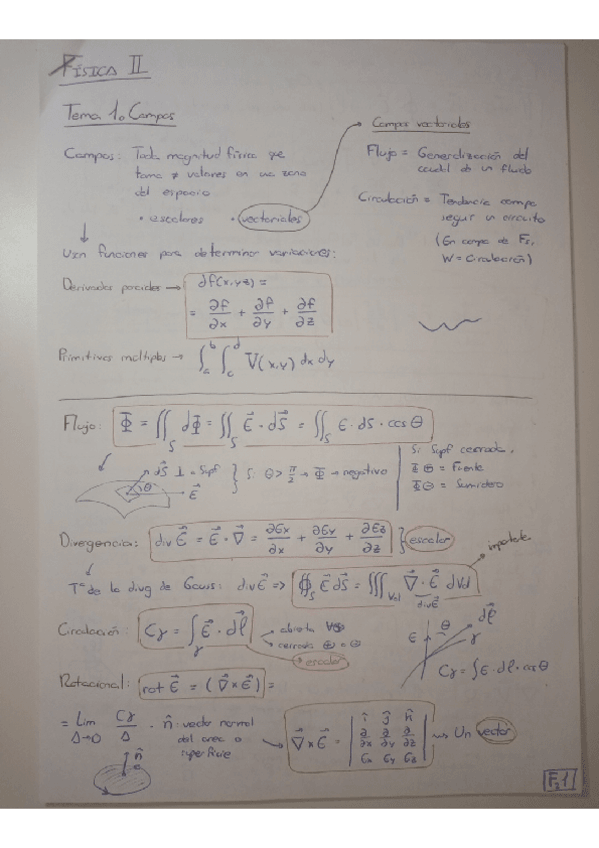 FÍSICA II
Tema 1. Campos
Campos: Toda magnitud física que
toma ≠ valores en una zona
del espacio
• escalares • vectoriales
Campos vectoriales
Flujo = Generalización del
caudal de un fluido
Circulación = Tendencia campo
seguir un circuito
(En campo de Fs,
W = Circulación)
Usan funciones para determinar variaciones:
Derivadas parciales → ∂f(x,yz) =
= ∂f/∂x + ∂f/∂y + ∂f/∂z
Primitivas múltiples → ∫_a^b ∫_c^d V(x,y) dx dy
Flujo: Φ = ∬_S dΦ = ∬_S E⃗ · dS⃗ = ∬_S E · dS · cos θ
dS⃗ ⊥ a supf
θ
E⃗
Si θ > π/2 → Φ → negativo
Si Supf cerrada,
Φ ⊕ = Fuente
Φ ⊖ = Sumidero
Divergencia: div E⃗ = E⃗ · ∇⃗ = ∂Ex/∂x + ∂Ey/∂y + ∂Ez/∂z } escalar
importante
Tª de la divg de Gauss: div E⃗ ⇒ ∯_S E⃗ dS⃗ = ∭_Vol ∇⃗ · E⃗ dVol
div E⃗
Circulación: Cγ = ∫_γ E⃗ · dℓ⃗
→ abierta
→ cerrada ⊕ o ⊖
escalar
E θ dℓ⃗
γ
Cγ = ∫E · dℓ · cos θ
Rotacional: rot E⃗ = (∇⃗ x E⃗) =
= Lim Δ→0 Cγ/Δ · n̂: vector normal
del area o
superficie
n̂
∇⃗ x E⃗ = | î ĵ k̂ |
| ∂/∂x ∂/∂y ∂/∂z |
| Ex Ey Ez |
→ Un vector
F₂1